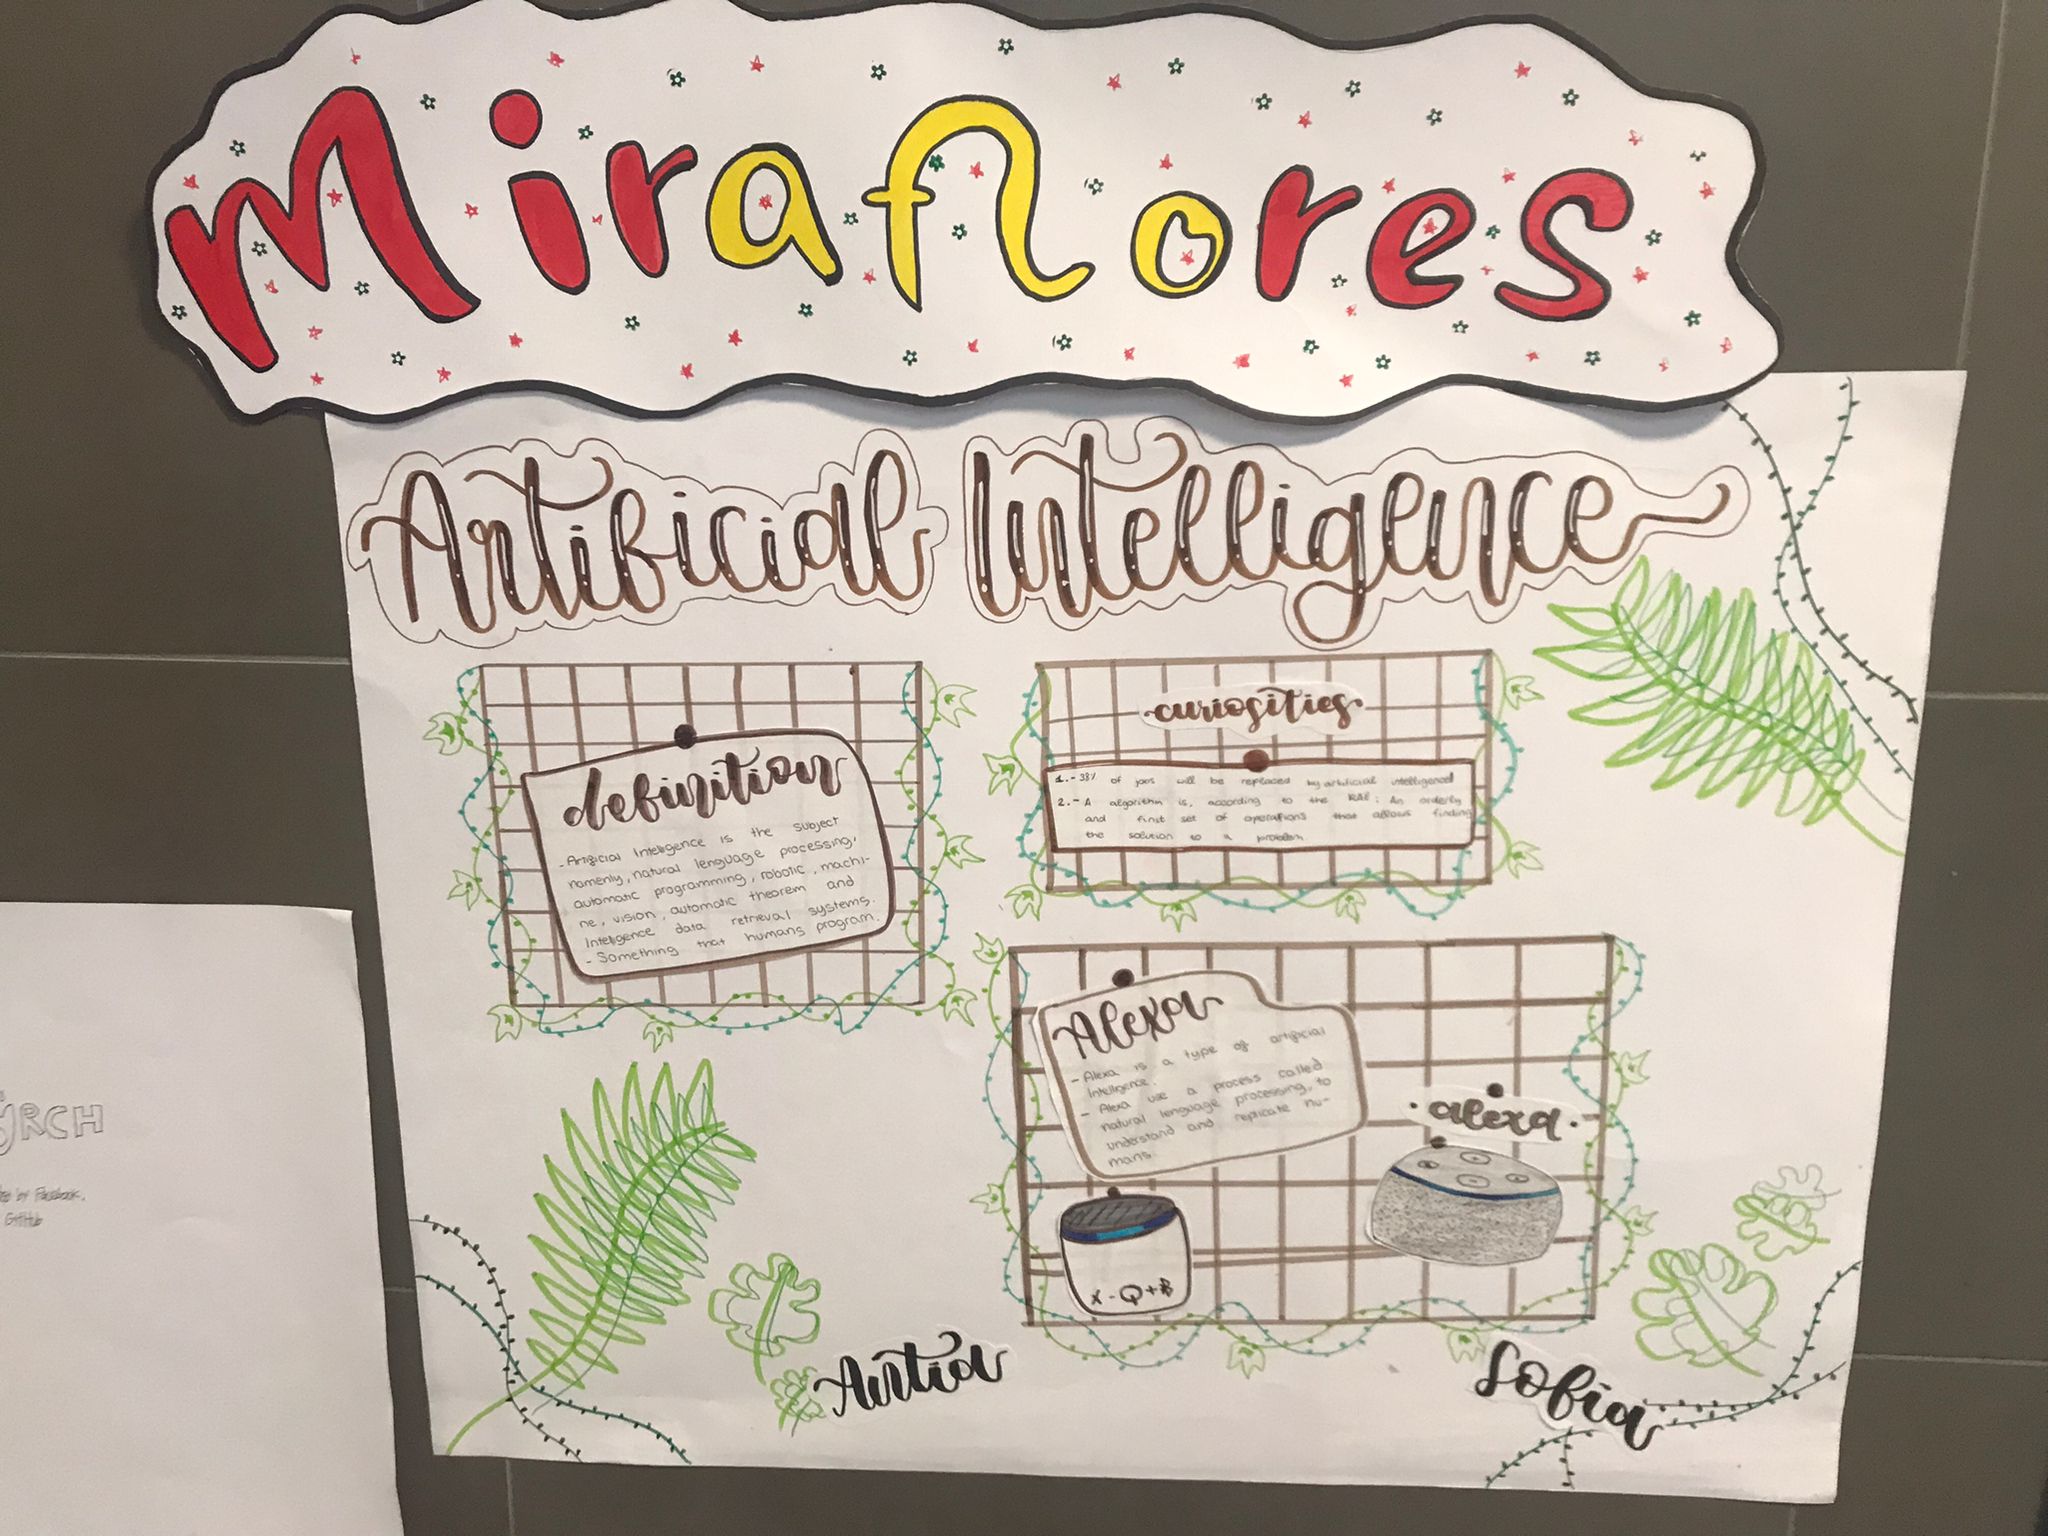 Miraflores
Artificial Intelligence
definition
- Artificial Inteligence is the subject
namenly, natural lenguage processing,
automatic programming, robotic, machi-
ne, vision, automatic theorem and
Inteligence data retrieval systems.
- Something that humans program.
curiosities
1.- 38% of jobs will be replaced by artificial intelligence!
2.- A algorithm is, according to the RAE: An orderly
and finst set of operations that allows finding
the solution to a problem.
Alexa
- Alexa is a type of artificial
Intelligence.
- Alexa use a process called
natural lenguage processing, to
understand and replicate hu-
mans.
alexa
X-Q+B
Antía
Sofía
RCH
by Facebook.
GitHub